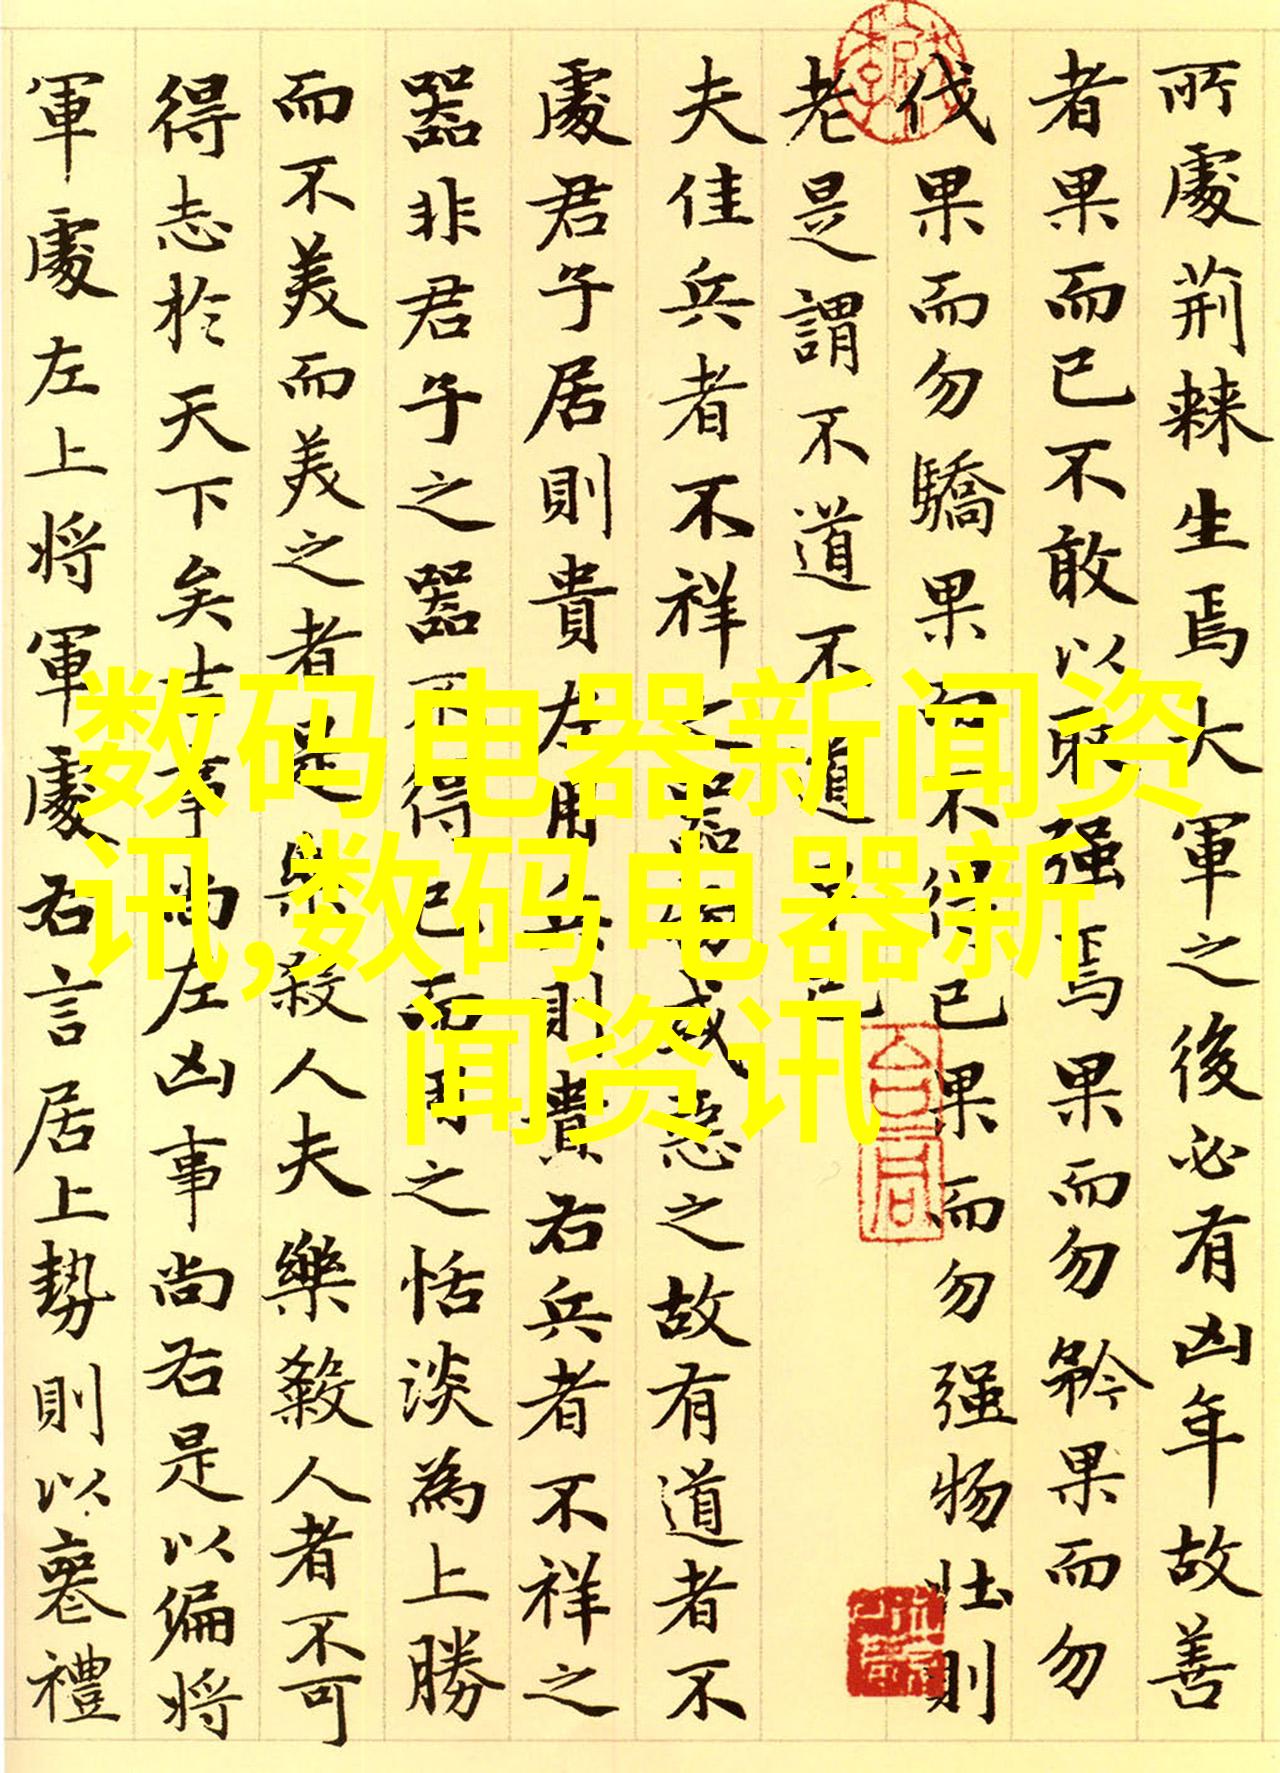 所處荊棘生焉大軍之後必有凶年故善
者果而已不敢以取强焉果而勿矜果而勿
伐果而勿驕果而不得已果而勿强物壮則
老是謂不道不道早已
夫佳兵者不祥之器物或惡之故有道者不
處君子居則貴左用兵則貴右兵者不祥之
器非君子之器不得已而用之恬淡為上勝
而不美而美之者是樂殺人夫樂殺人者不可
得志於天下矣吉事尚左凶事尚右是以偏將
軍處左上將軍處右言居上勢則以喪禮
数码电器新闻资
讯,数码电器新
闻资讯